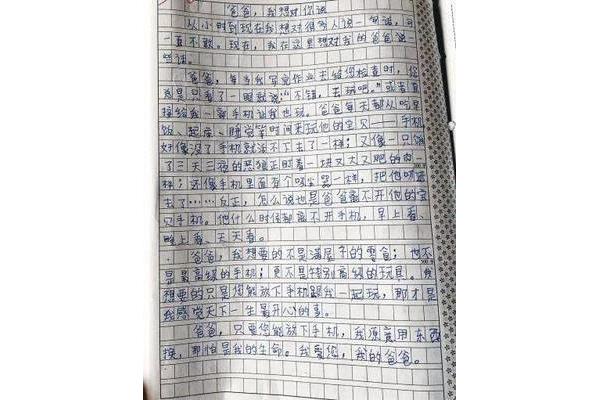 爸爸，我想对你说
从小时到现在我想对很多人说一句话，可
一直不敢。现在，我在这里想对我的爸爸说
些话。
爸爸，每当我写完作业去给您检查时，你
总是只看了一眼就说“不错，去玩吧。”或者直
接给我一部手机让我也玩。爸爸每天都从吃早
饭、起床、睡觉等时间来玩他的宝贝——手机
好像没了手机就活不下去了一样；又像一只饿
了三天三夜的恶狼正盯着一块又大又肥的肉
一样；还像手机里面有个吸尘器一样，把他吸进
去了……反正，怎么说也是爸爸离不开他的宝
贝手机。他什么时候都离不开手机，早上看、
晚上看，天天看。
爸爸，我想要的不是满屋子的零食；也不
是最高级的手机；更不是特别高级的玩具。我
想要的只是您能放下手机跟我一起玩，那才是
我感觉天下一生最开心的事。
爸爸，只要您能放下手机，我愿意用东西
换，那怕是我的生命。我爱您，我的爸爸。